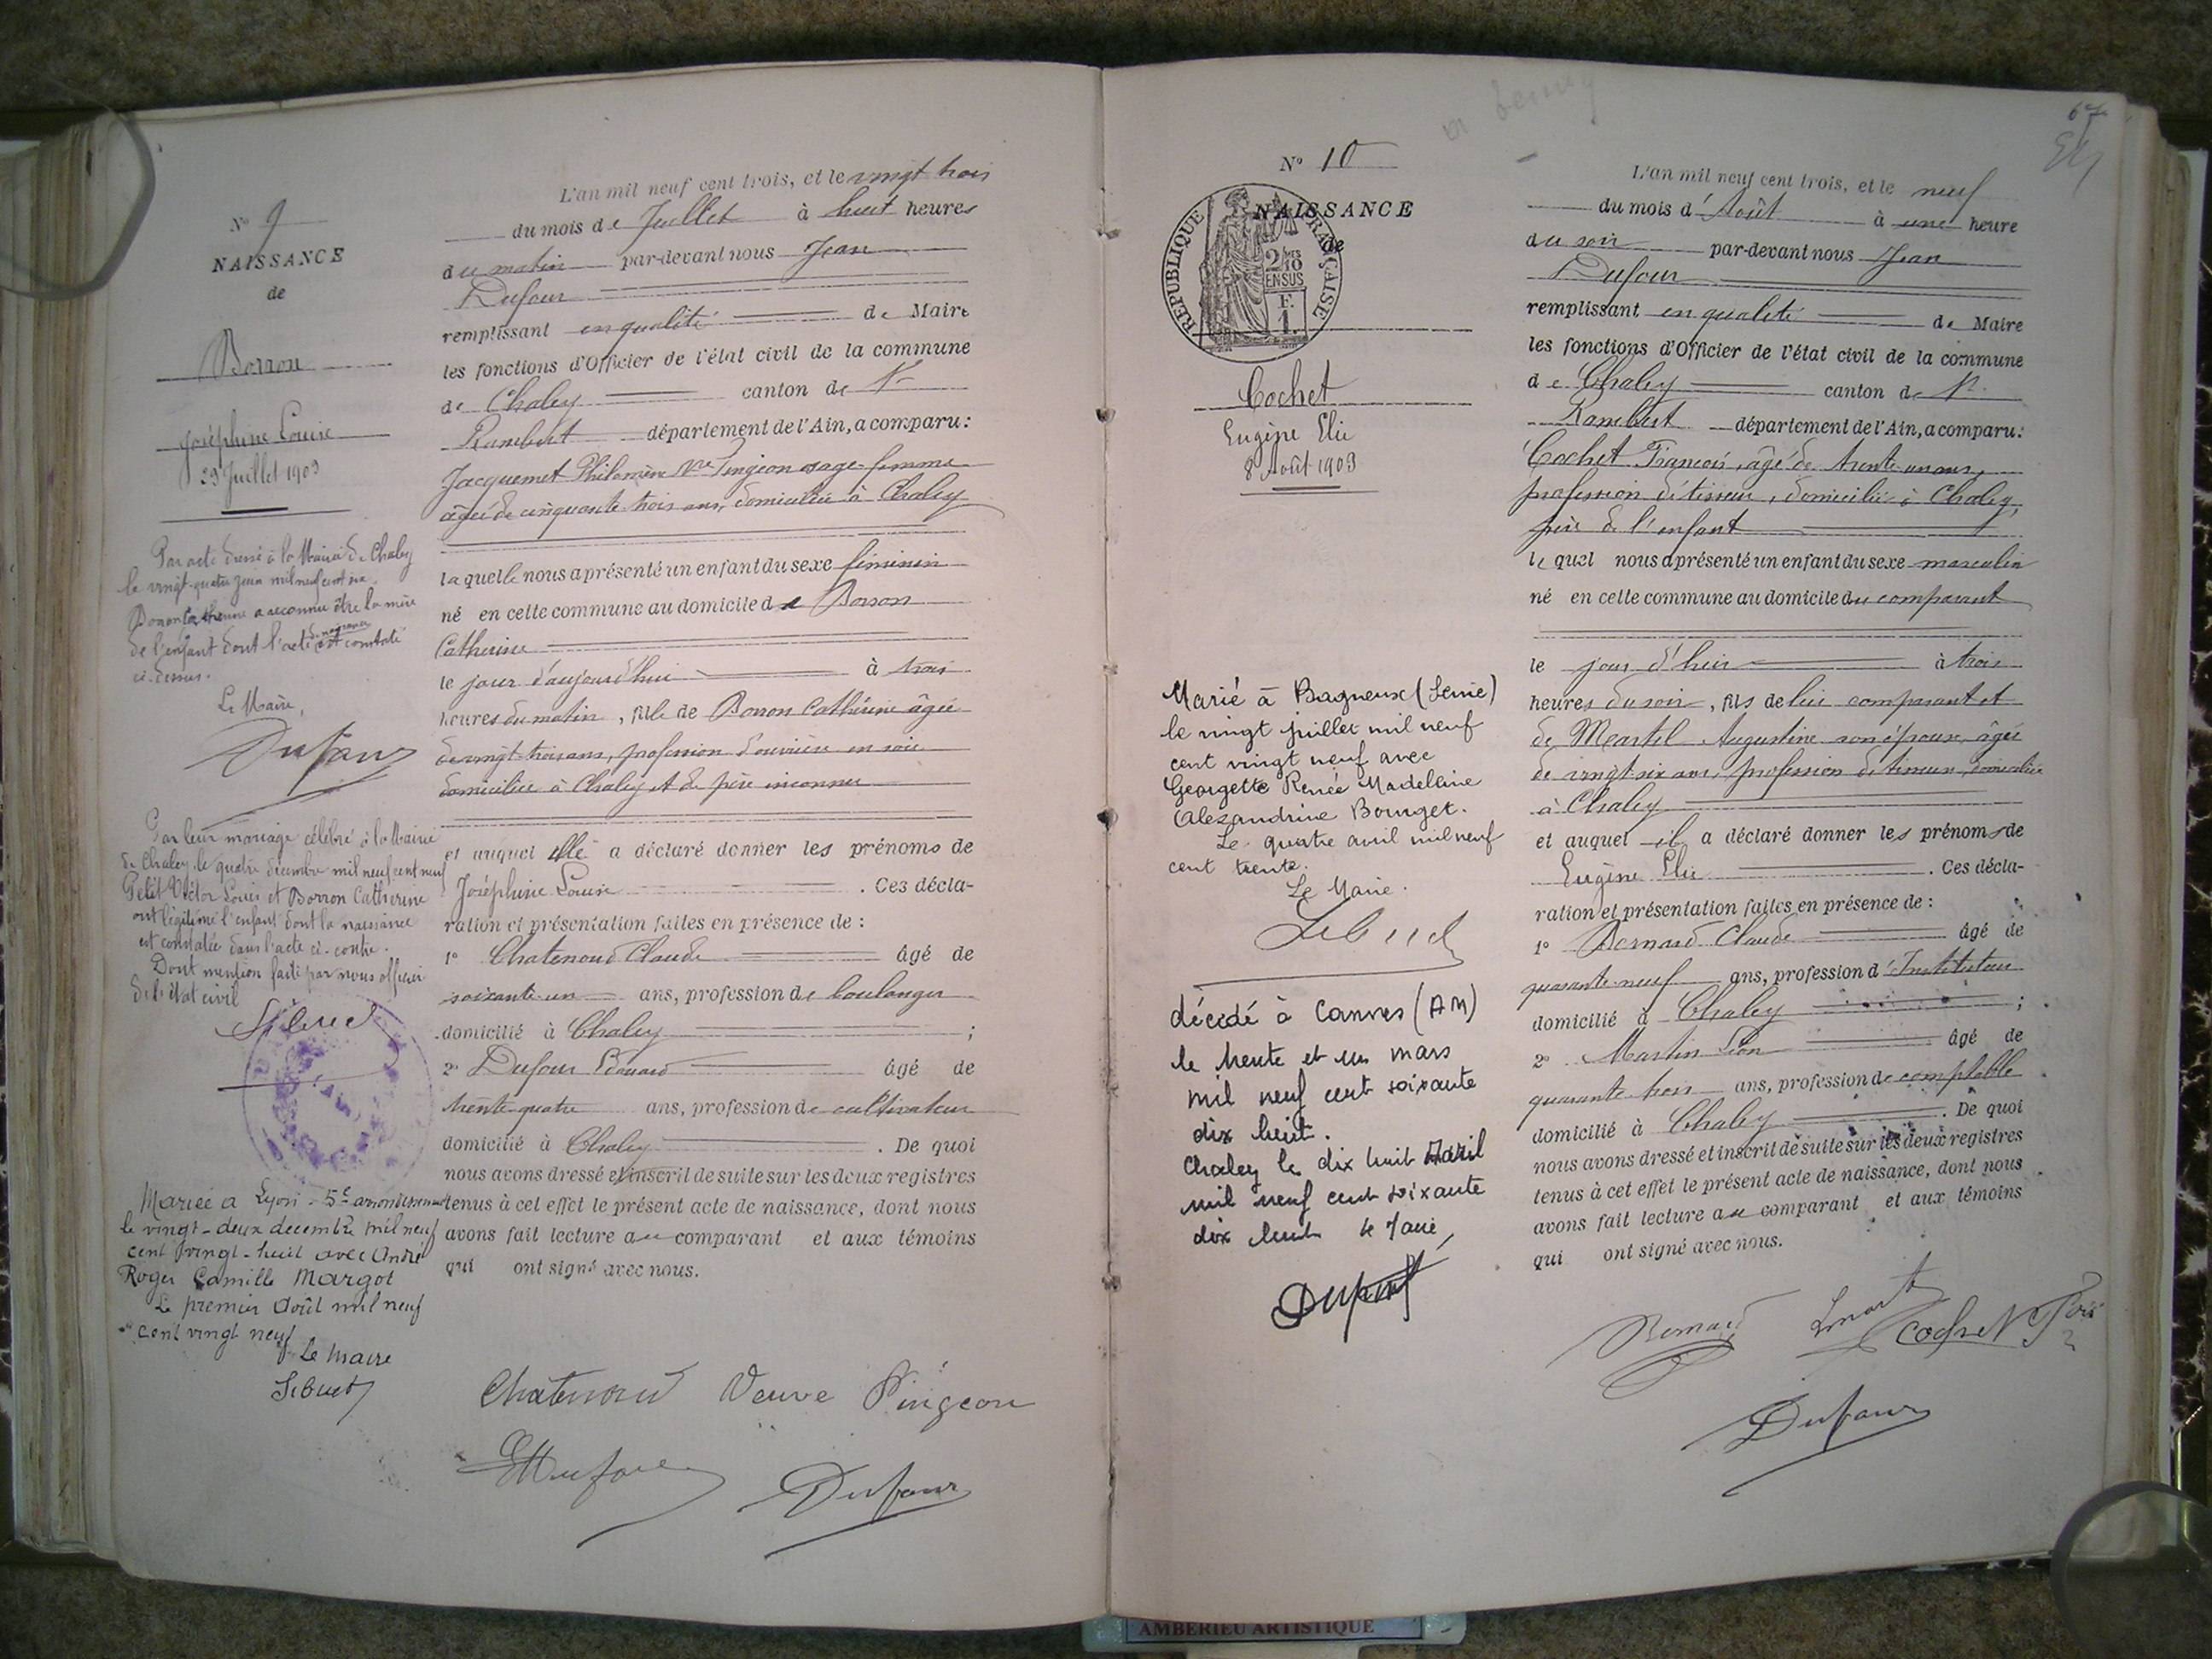 Nº 9
NAISSANCE
de
Borron
Joséphine Louise
23 Juillet 1903
Par acte dressé à la Mairie de Chaley
le vingt-quatre juin mil neuf cent six
Borron Catherine a reconnu être la mère
de l'enfant dont l'acte de naissance est constaté
ci-dessus.
Le Maire,
Dufour
Par leur mariage célébré à la Mairie
de Chaley, le quatre décembre mil neuf cent neuf
Petit Victor Louis et Borron Catherine
ont légitimé l'enfant dont la naissance
est constatée dans l'acte ci-contre.
Dont mention faite par nous officier
de l'état civil
Sibuet
Mariée a Lyon - 5e arrondissement
le vingt-deux decembre mil neuf
cent vingt-huit avec André
Roger Camille Margot
Le premier Août mil neuf
cent vingt neuf
Le Maire
Sibuet
L'an mil neuf cent trois, et le vingt trois
du mois de Juillet à huit heures
du matin par-devant nous Jean
Dufour
remplissant en qualité de Maire
les fonctions d'Officier de l'état civil de la commune
de Chaley canton de St
Rambert département de l'Ain, a comparu:
Jacquemet Philomène Vve Pingeon sage-femme
âgée de cinquante trois ans, domiciliée à Chaley
laquelle nous a présenté un enfant du sexe féminin
né en cette commune au domicile de Borron
Catherine
le jour d'aujourd'hui à trois
heures du matin, fille de Borron Catherine âgée
de vingt trois ans, profession d'ouvrière en soie
domiciliée à Chaley et de père inconnu
et auquel elle a déclaré donner les prénoms de
Joséphine Louise . Ces décla-
ration et présentation faites en présence de :
1º Chatenoud Claude âgé de
soixante-un ans, profession de boulanger
domicilié à Chaley ;
2º Dufour Edouard âgé de
trente-quatre ans, profession de cultivateur
domicilié à Chaley . De quoi
nous avons dressé et inscrit de suite sur les deux registres
tenus à cet effet le présent acte de naissance, dont nous
avons fait lecture au comparant et aux témoins
qui ont signé avec nous.
Chatenoud Veuve Pingeon
EDufour Dufour
67
Nº 10
NAISSANCE
de
REPUBLIQUE FRANÇAISE
2/10
EN SUS
F.
1.
Cochet
Eugène Elie
8 Août 1903
Marié à Bagneux (Seine)
le vingt juillet mil neuf
cent vingt neuf avec
Georgette Renée Madeleine
Alexandrine Bourget.
Le quatre avril mil neuf
cent trente.
Le Maire.
Sibuet
décédé à Cannes (AM)
le trente et un mars
mil neuf cent soixante
dix huit.
Chaley le dix huit Avril
mil neuf cent soixante
dix huit le Maire,
L'an mil neuf cent trois, et le neuf
du mois d'Août à une heure
du soir par-devant nous Jean
Dufour
remplissant en qualité de Maire
les fonctions d'Officier de l'état civil de la commune
de Chaley canton de St
Rambert département de l'Ain, a comparu:
Cochet François, âgé de trente un ans,
profession de tisseur, domicilié à Chaley,
père de l'enfant
lequel nous a présenté un enfant du sexe masculin
né en cette commune au domicile du comparant
le jour d'hier à trois
heures du soir, fils de lui comparant et
de Martel Augustine son épouse, âgée
de vingt-six ans, profession de tisseuse, domiciliée
à Chaley
et auquel il a déclaré donner les prénoms de
Eugène Elie . Ces décla-
ration et présentation faites en présence de :
1º Bernard Claude âgé de
quarante-neuf ans, profession d'Instituteur
domicilié à Chaley ;
2º Martin Léon âgé de
quarante trois ans, profession de comptable
domicilié à Chaley . De quoi
nous avons dressé et inscrit de suite sur les deux registres
tenus à cet effet le présent acte de naissance, dont nous
avons fait lecture au comparant et aux témoins
qui ont signé avec nous.
Bernard Cochet
Dufour
AMBERIEU ARTISTIQUE